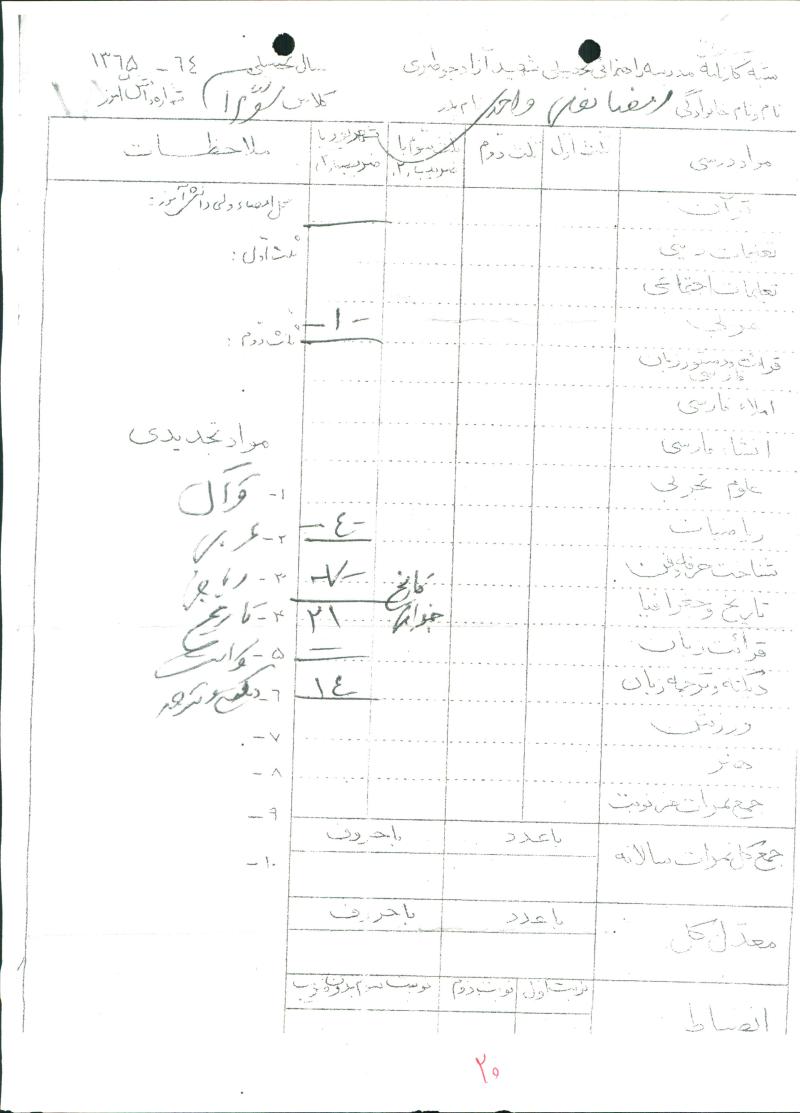 مثبته کارنامه مدرسه راهنمائی تحصیلی شهید آزاد جو طبری سال تحصیلی ٦٤ - ۱۳۶۵
نام و نام خانوادگی رمضانعلی واحدی نام پدر کلاس سوم ۱ شماره دانش آموز
مواد درسی ثلث اول ثلث دوم ثلث سوم با ضریب ۲ شهریور با ضریب ملاحظات
قرآن محل امضاء ولی دانش آموز:
تعلیمات دینی ثلث اول:
تعلیمات اجتماعی
عربی -۱- ثلث دوم:
قرائت و دستور زبان فارسی
املاء فارسی
انشاء فارسی مواد تجدیدی
علوم تجربی ۱- قرآن
ریاضیات -٤- ۲- عربی
شناخت حرفه و فن -۷- ۳- ریاضی
تاریخ و جغرافیا تاریخ ۲۱ ۴- تاریخ
قرائت زبان — ۵- قرائت
دیکته و ترجمه زبان ۱٤ ٦- دیکته و ترجمه
ورزش ۷-
هنر ۸-
جمع نمرات هر نوبت ۹-
جمع کل نمرات سالانه با عدد با حروف ۱۰-
معدل کل با عدد با حروف
انضباط نوبت اول نوبت دوم نوبت سوم بدون ضریب
۲۰